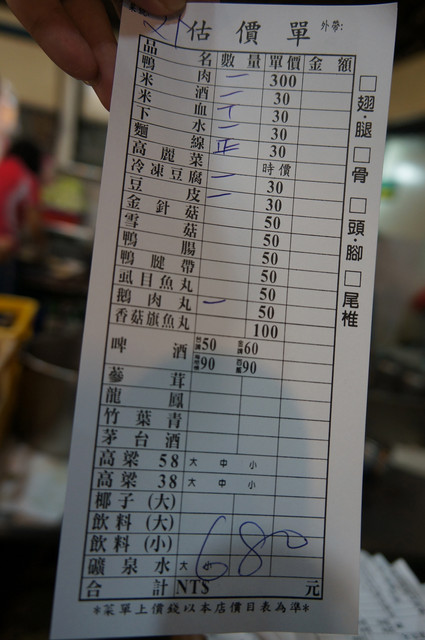 21 估價單 外帶:
品名 數量 單價 金額
鴨肉 一 300
米酒 一 30
米血 30
下水 一 30
麵線 正 30
高麗菜 時價
冷凍豆腐 一 30
豆皮 一 30
金針菇 50
雪菇 50
鴨腸 50
鴨腱帶 50
虱目魚丸 50
鵝肉丸 一 50
香菇旗魚丸 100
啤酒 50 60
90 90
蔘茸
龍鳳
竹葉青
茅台酒
高梁 58 大 中 小
高梁 38 大 中 小
椰子(大)
飲料(大)
飲料(小)
礦泉水 大 小
合計 NT$ 680 元
*菜單上價錢以本店價目表為準*
□翅·腿□骨□頭·腳□尾椎